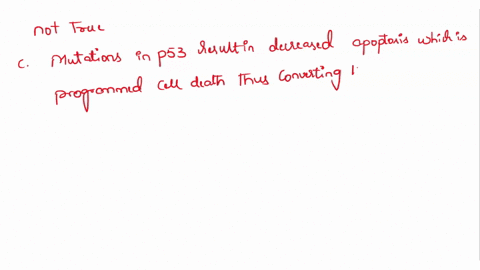 not True
c. Mutations in p53 result in decreased apoptosis which is
programmed cell death thus converting